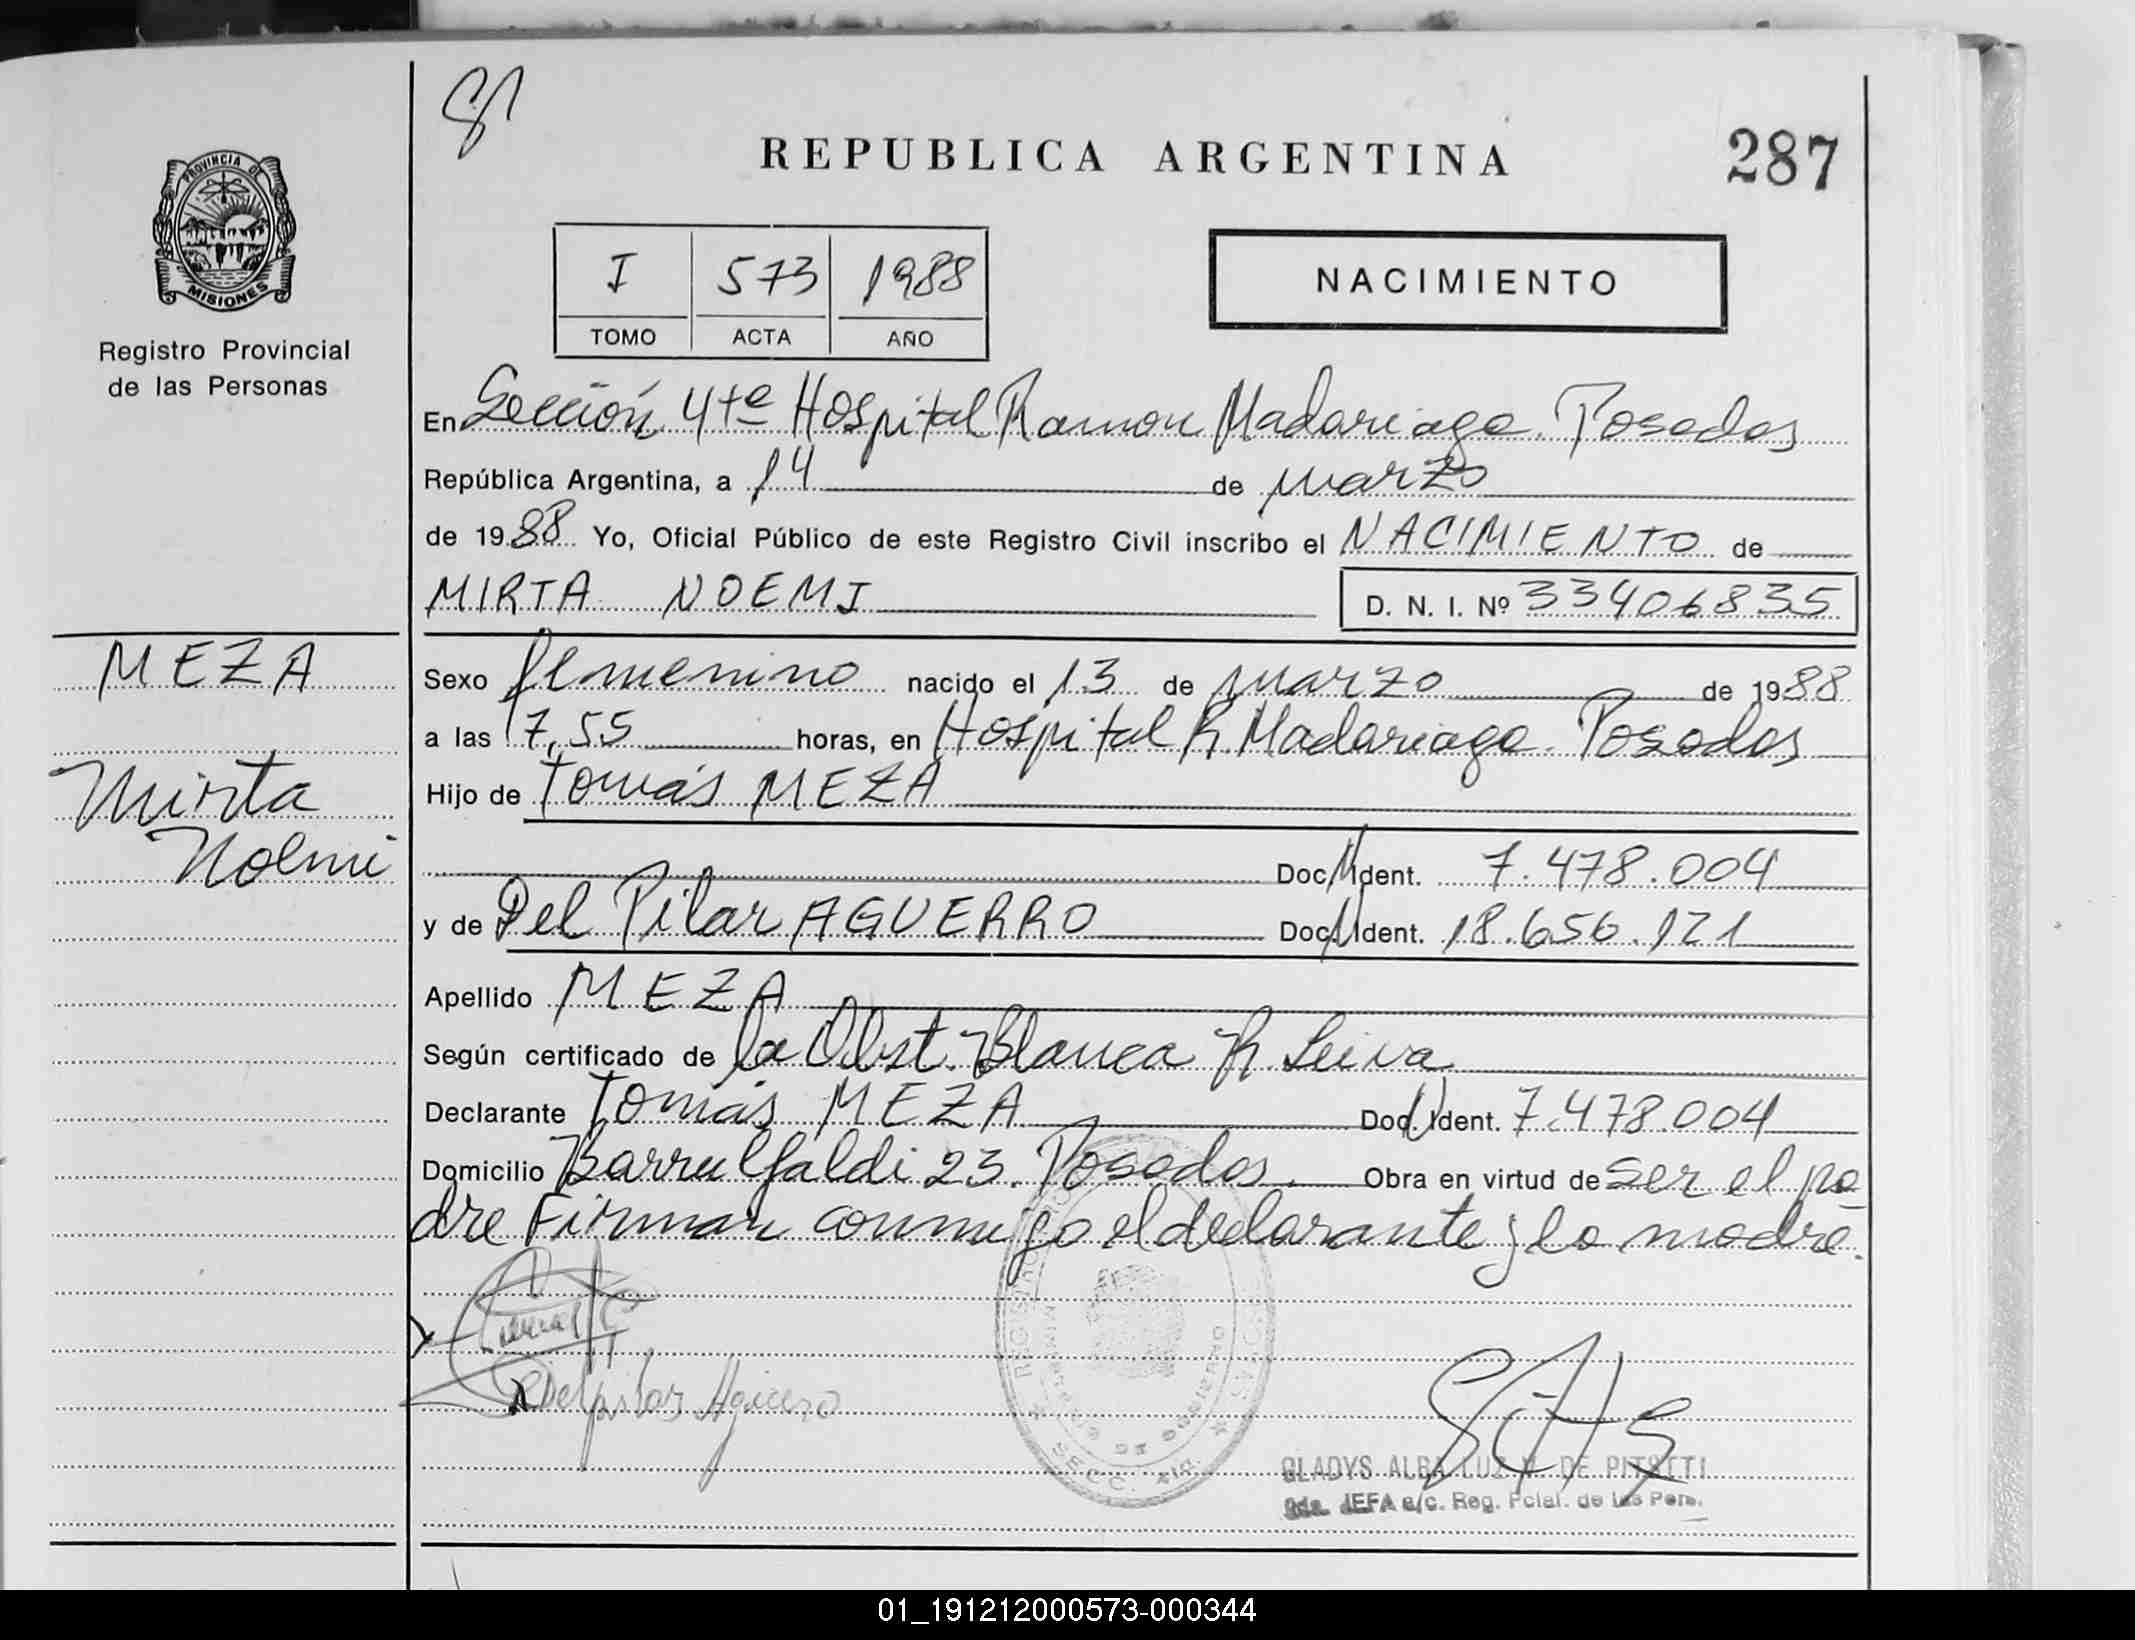 PROVINCIA DE
MISIONES
Registro Provincial
de las Personas
MEZA
Mirta
Noemi
REPUBLICA ARGENTINA
287
I 573 1988
TOMO ACTA AÑO
NACIMIENTO
En Sección 4te Hospital Ramon Madariaga. Posadas
República Argentina, a 14 de marzo
de 1988 Yo, Oficial Público de este Registro Civil inscribo el NACIMIENTO de
MIRTA NOEMI D. N. I. Nº 33406835
Sexo femenino nacido el 13 de marzo de 1988
a las 17,55 horas, en Hospital R. Madariaga. Posadas
Hijo de Tomás MEZA
Doc. Ident. 7.478.004
y de Del Pilar AGUERRO Doc. Ident. 18.656.121
Apellido MEZA
Según certificado de la Obst. Blanca R. Leiva
Declarante Tomás MEZA Doc. Ident. 7.478.004
Domicilio 23. Posadas. Obra en virtud de ser el pa
dre Firman conmigo el declarante y la madre.
Delpilar Aguero
SECC.
GLADYS ALBA LUZ DE
JEFA a/c. Reg. Pcial. de las Pers.
01_191212000573-000344